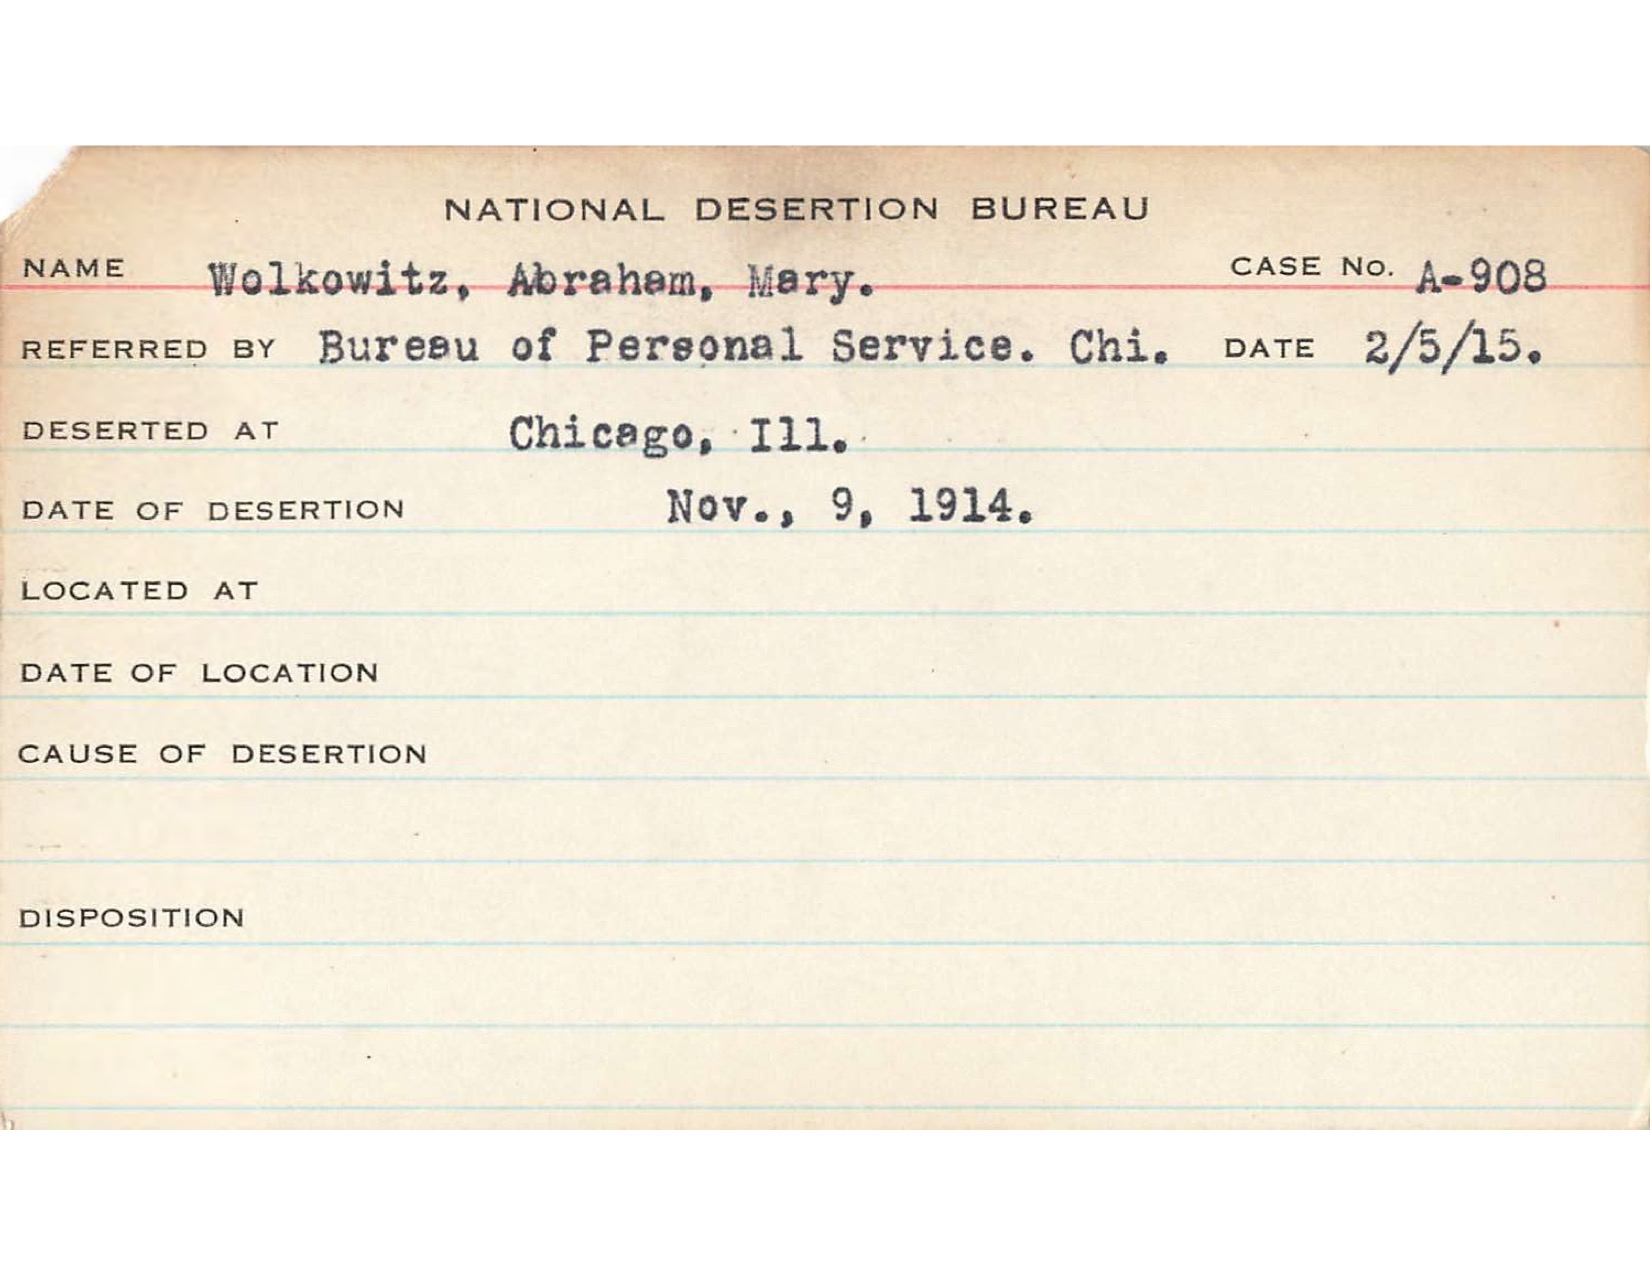 NATIONAL DESERTION BUREAU
NAME Wolkowitz, Abraham, Mary. CASE No. A-908
REFERRED BY Bureau of Personal Service. Chi. DATE 2/5/15.
DESERTED AT Chicago, Ill.
DATE OF DESERTION Nov., 9, 1914.
LOCATED AT
DATE OF LOCATION
CAUSE OF DESERTION
DISPOSITION